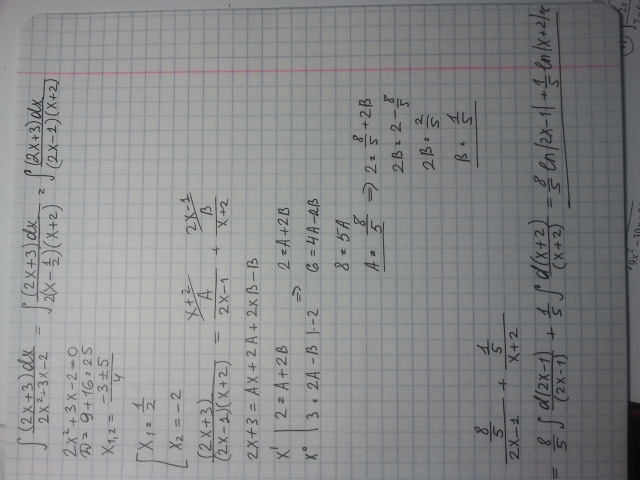 ∫ (2x+3)dx / 2x²+3x-2 = ∫ (2x+3)dx / 2(x-1/2)(x+2) = ∫ (2x+3)dx / (2x-1)(x+2)
2x²+3x-2=0
D=9+16=25
x1,2 = -3±5 / 4
[ x1 = 1/2
x2 = -2
(2x+3) / (2x-1)(x+2) = x+2/ A / 2x-1 + 2x-1/ B / x+2
2x+3 = Ax+2A+2xB-B
x¹ | 2=A+2B ⇒ 2=A+2B
x⁰ | 3=2A-B |·2 6=4A-2B
8=5A
A = 8/5 ⇒ 2 = 8/5 + 2B
2B = 2 - 8/5
2B = 2/5
B = 1/5
8/5 / 2x-1 + 1/5 / x+2
= 8/5 ∫ d(2x-1) / (2x-1) + 1/5 ∫ d(x+2) / (x+2) = 8/5 ln|2x-1| + 1/5 ln|x+2|